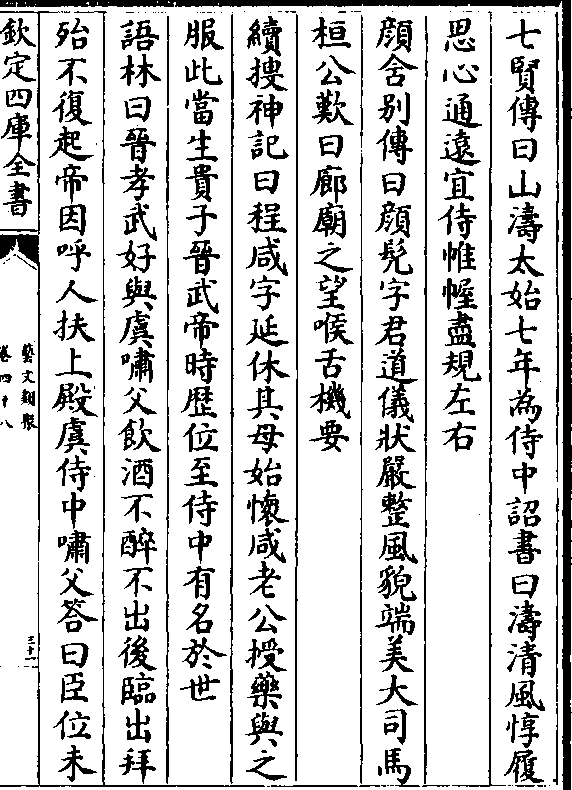 七賢傳曰山濤太始七年為侍中詔書曰濤清風惇履
思心通遠宜侍帷幄盡規左右
顔舍別傳曰顔髠字君道儀狀嚴整風貌端美大司馬
桓公歎曰廊廟之望喉舌機要
續搜神記曰程咸字延休其母始懷咸老公授藥與之
服此當生貴子晉武帝時歷位至侍中有名於世
語林曰晉孝武好與虞嘯父飲酒不醉不出後臨出拜
殆不復起帝因呼人扶上殿虞侍中嘯父答曰臣位未
欽定四庫全書
藝文類聚
卷四十八
三十一